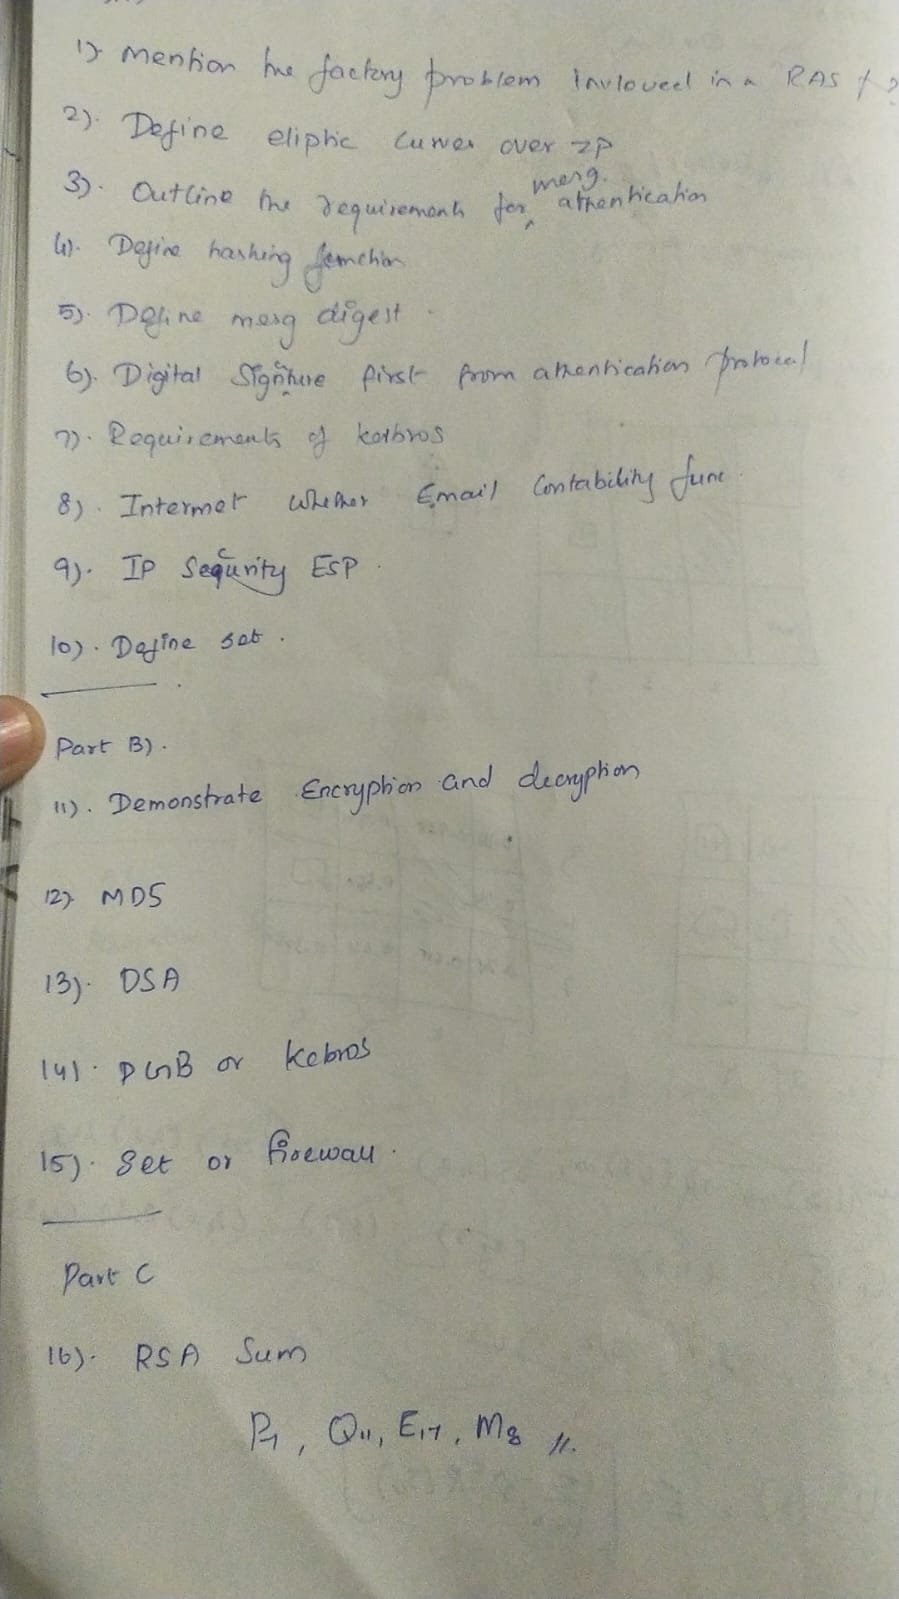 1) Mention the factory problem invloved in a RAS
2). Define eliptic curves over ZP
3). Outline the requirements for mesg. athentication
4). Define hashing function
5). Define mesg digest
6). Digital Signture first from athentication protocol
7). Requirements of kerbros
8). Internet whether Email Contability func
9). IP Security ESP.
10). Define set.
Part B).
11). Demonstrate Encryption and decryption
12) MD5
13). DSA
14). or Kebros
15). Set or firewall.
Part C
16). RSA Sum
Q11, E17, M8 //.